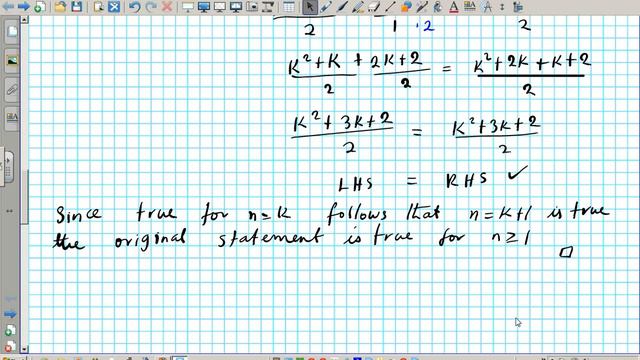 2 1 · 2 2
K² + K / 2 + 2K + 2 / 2 = K² + 2K + K + 2 / 2
K² + 3K + 2 / 2 = K² + 3K + 2 / 2
LHS = RHS ✓
Since true for n = K follows that n = K+1 is true
the original statement is true for n ≥ 1 □